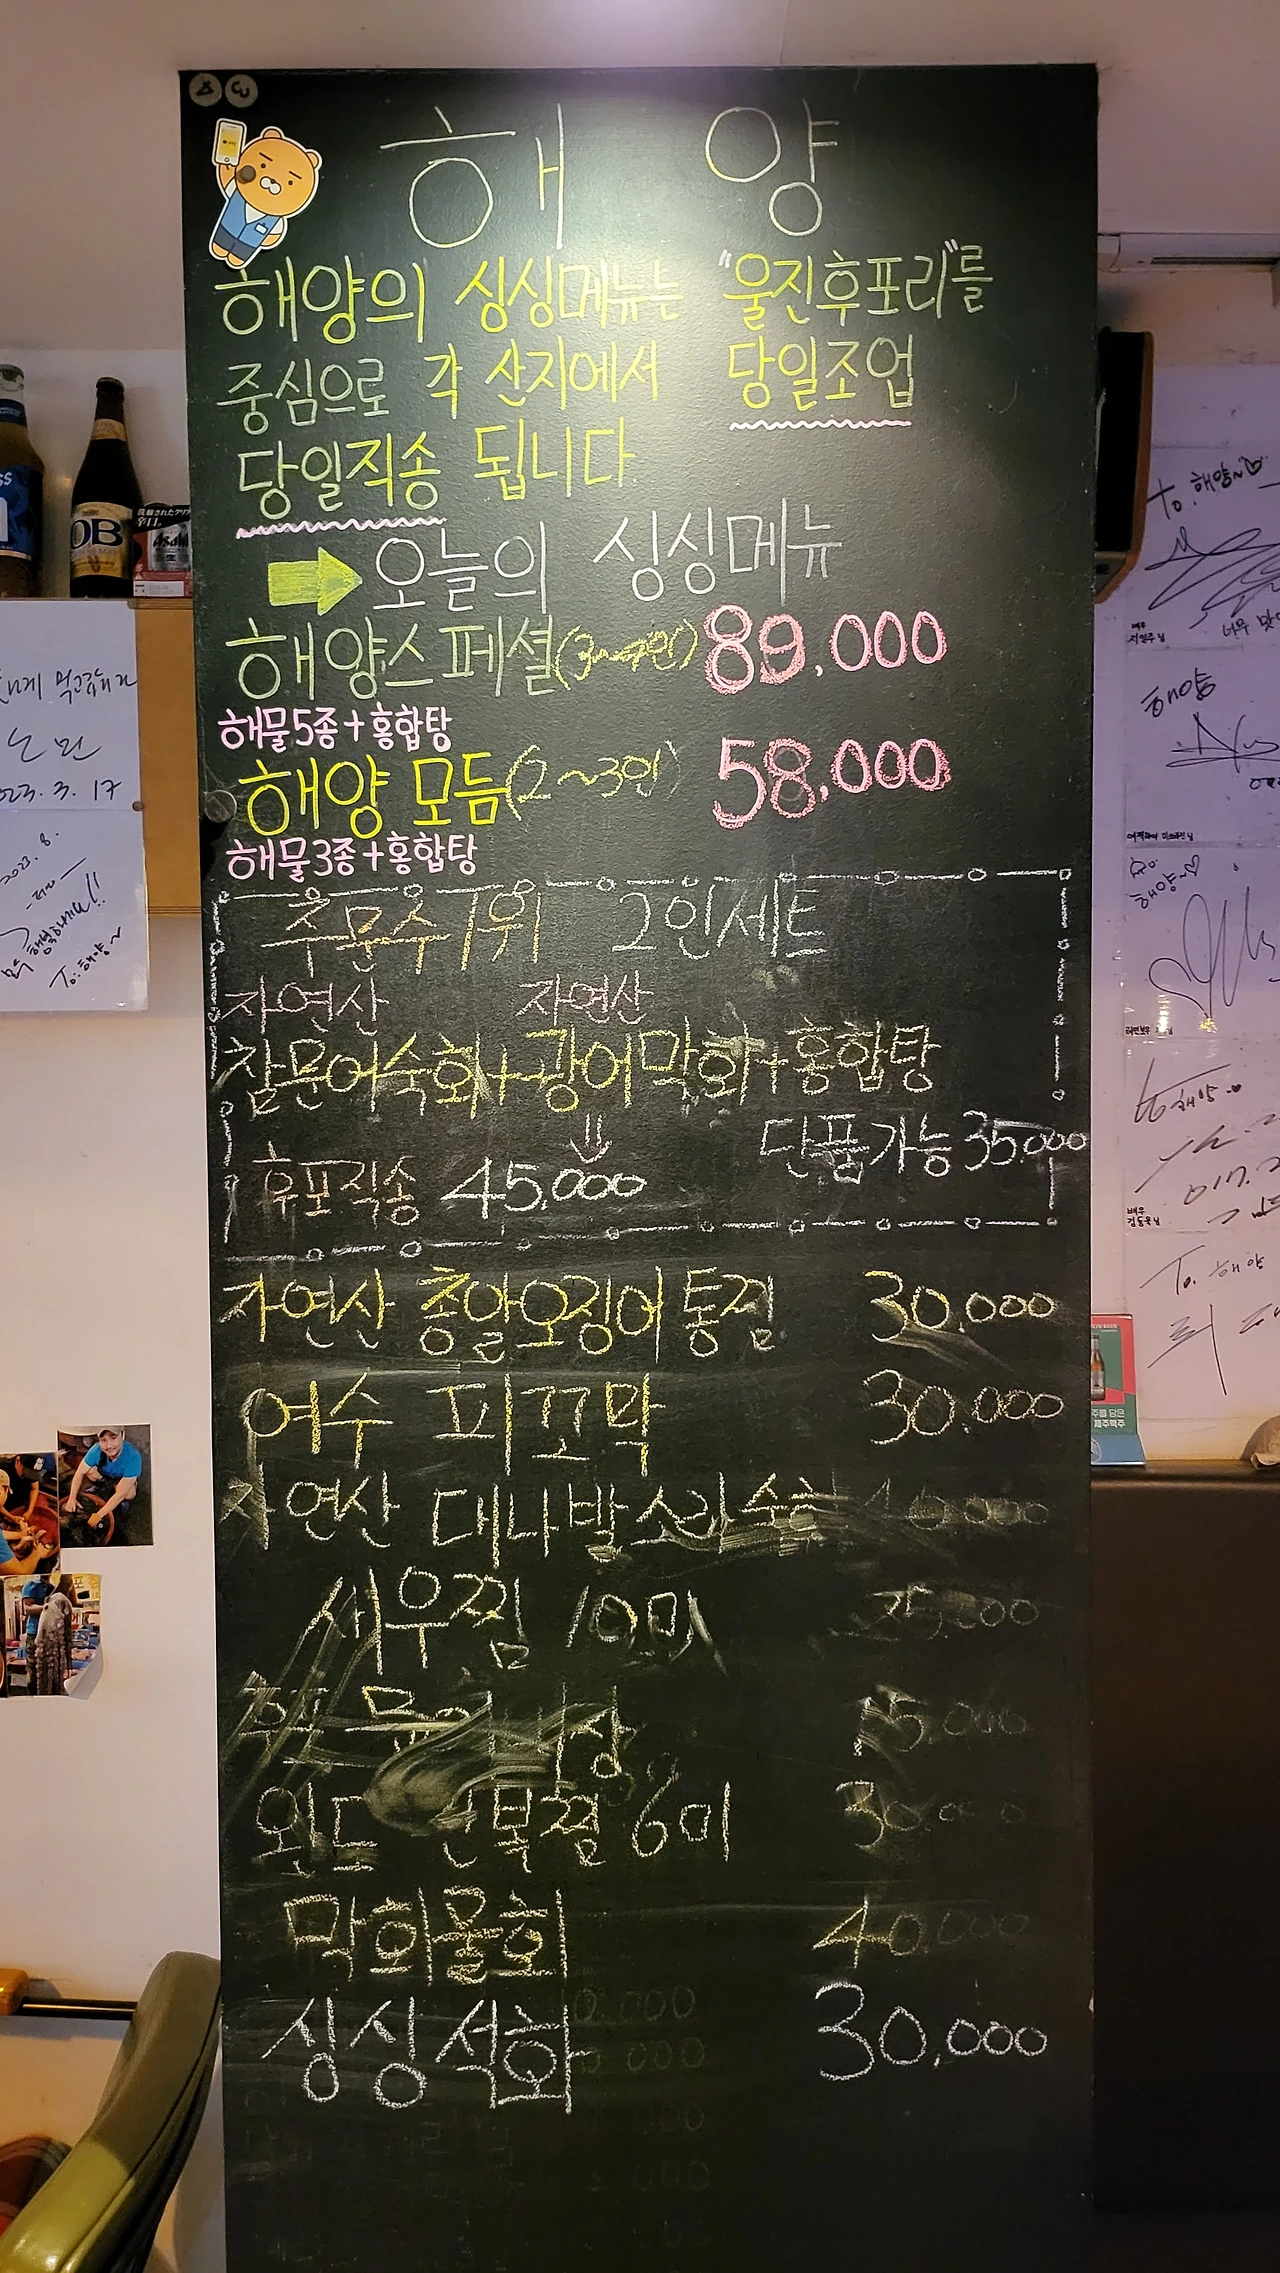 해 양
해양의 싱싱메뉴는 "울진후포리"를
중심으로 각 산지에서 당일조업
당일직송 됩니다.
오늘의 싱싱메뉴
해양스페셜(3~4인) 89,000
해물5종+홍합탕
해양 모듬(2~3인) 58,000
해물3종+홍합탕
주문수1위 2인세트
자연산 자연산
참문어숙회+광어막회+홍합탕
단품가능 35.000
후포직송 45.000
자연산 총알오징어통찜 30.000
여수 피꼬막 30.000
자연산 대나발소라숙회
새우찜 10미
15.000
완도 전복찜 6미 30.000
막회물회 40.000
싱싱석화 30.000
OB
Asahi
2023. 3. 17
2023. 8.
To: 해양~
To. 해양~♡
해양
해양~♡
To. 해양